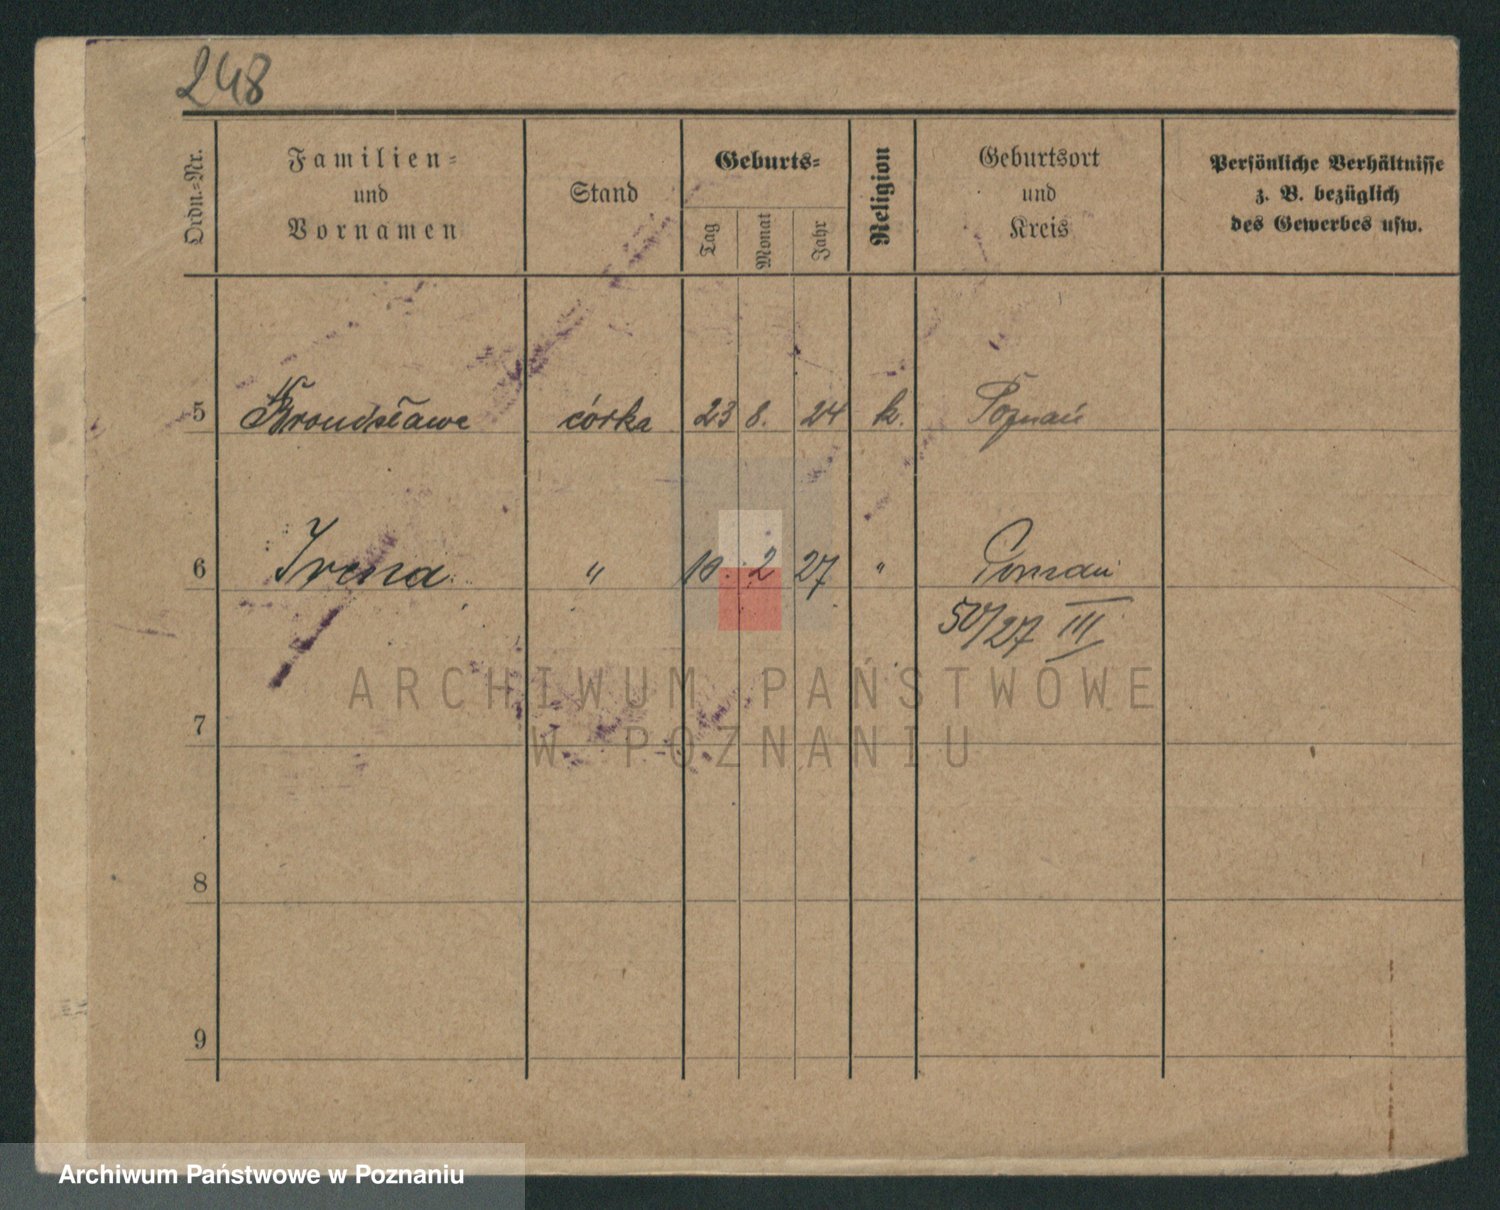 248
Ordn.-Nr.
Familien-
und
Vornamen
Stand
Geburts-
Tag
Monat
Jahr
Religion
Geburtsort
und
Kreis
Persönliche Verhältnisse
z. B. bezüglich
des Gewerbes usw.
5 córka 23 8. 24 k. Poznań
6 Irena " 10. 2 27 " Poznań
50/27 III
7
8
9
ARCHIWUM PAŃSTWOWE
W POZNANIU
Archiwum Państwowe w Poznaniu